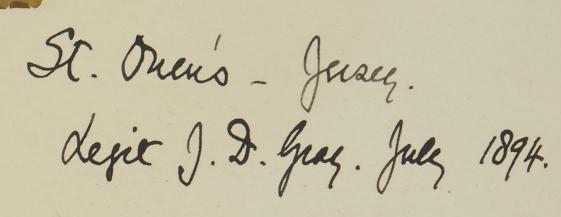 St. Ouen's - Jersey.
Legit J. D. Gray. July 1894.